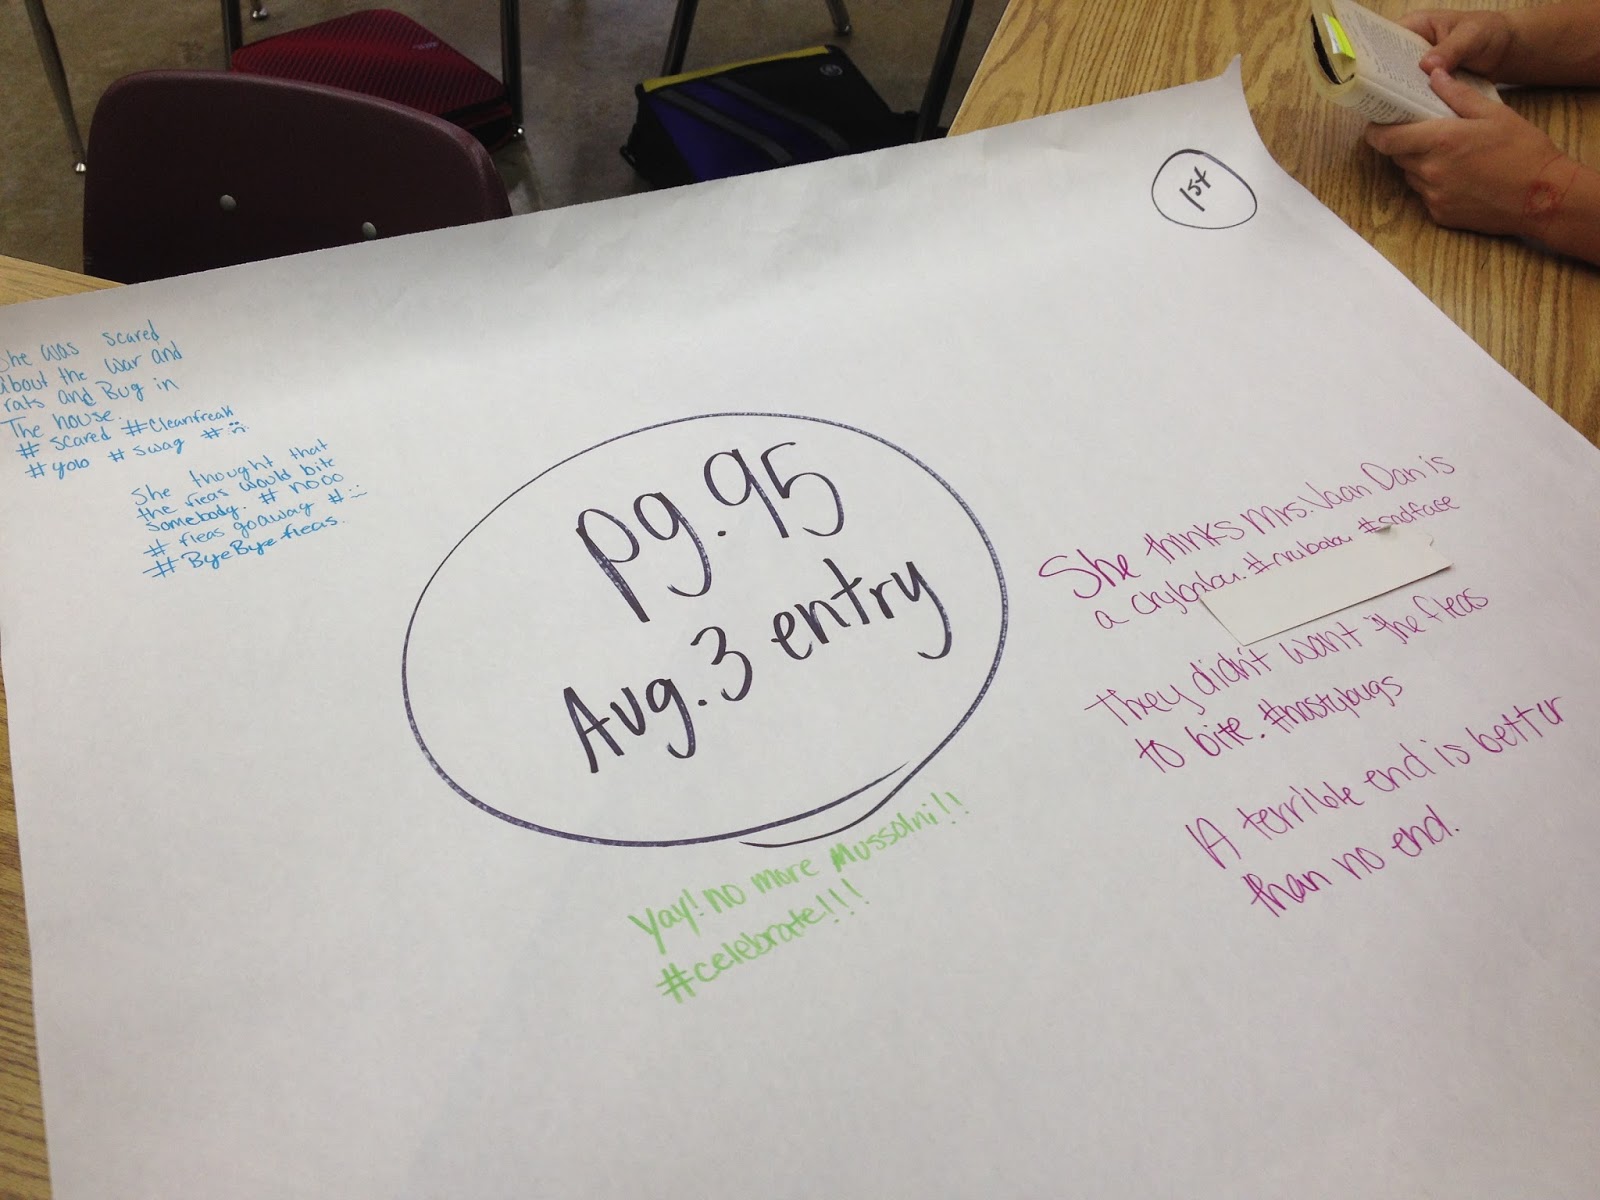 1st
She was scared
about the war and
rats and Bug in
The house.
# scared #Cleanfreak
# yolo # swag #
She thought that
the fleas would bite
somebody. # nooo
# fleas goaway #
# ByeBye fleas.
pg. 95
Aug. 3 entry
Yay! no more Mussolni!!
#celebrate!!!
She thinks Mrs. Vaan Dan is
a crybabay. #sadface
They didn't want the fleas
to bite. #nastybugs
A terrible end is bettur
than no end.